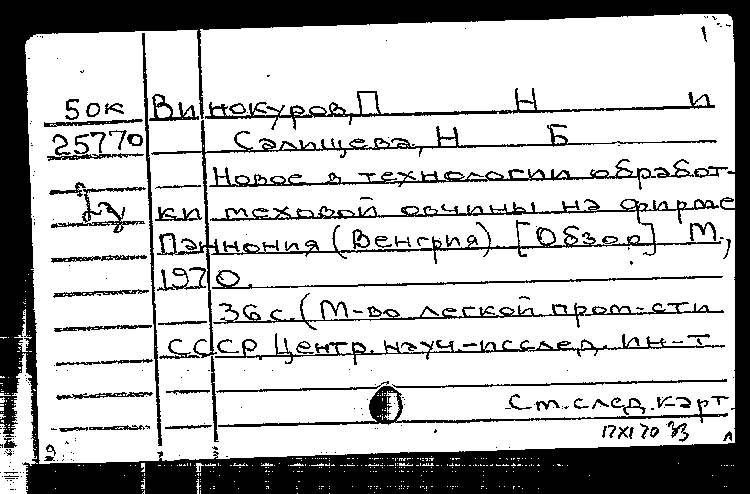 1
50к Винокуров, П Н и
25770 Салищева, Н Б
Новое в технологии обработ-
ки меховой овчины на фирме
Паннония (Венгрия). [Обзор] М.,
1970.
36 с. (М-во легкой пром-сти
СССР. Центр. науч.-исслед. ин-т
См. след. карт.
17 XI 70